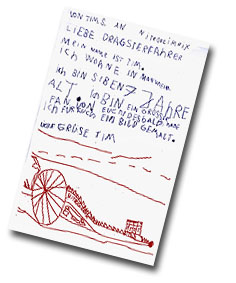 VON TIMS AN NITROLYMPIX
LIEBE DRAGSTERFAHRER
MEIN NAME IST TIM.
ICH WOHNE IN MANNHEIM
ICH BIN SIBEN 7 JAHRE
ALT. ICH BIN EIN GROSSER
FAN VON EUCH
ICH FÜR EUCH EIN BILD GEMALT.
GRÜSE TIM